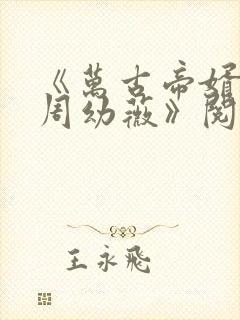 《萬古帝婿
周幼薇》閱
王永飛